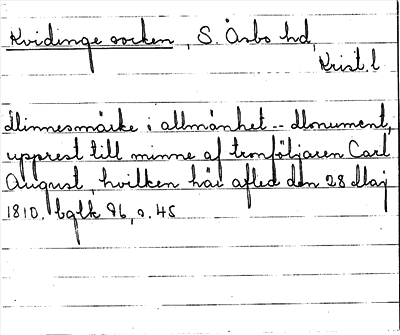 Kvidinge socken, S. Åsbo hd,
Krist. l
Minnesmärke i allmänhet -- Monument,
upprest till minne af tronföljaren Carl
August, hvilken här afled den 28 Maj
1810. bglk 96, o. 45